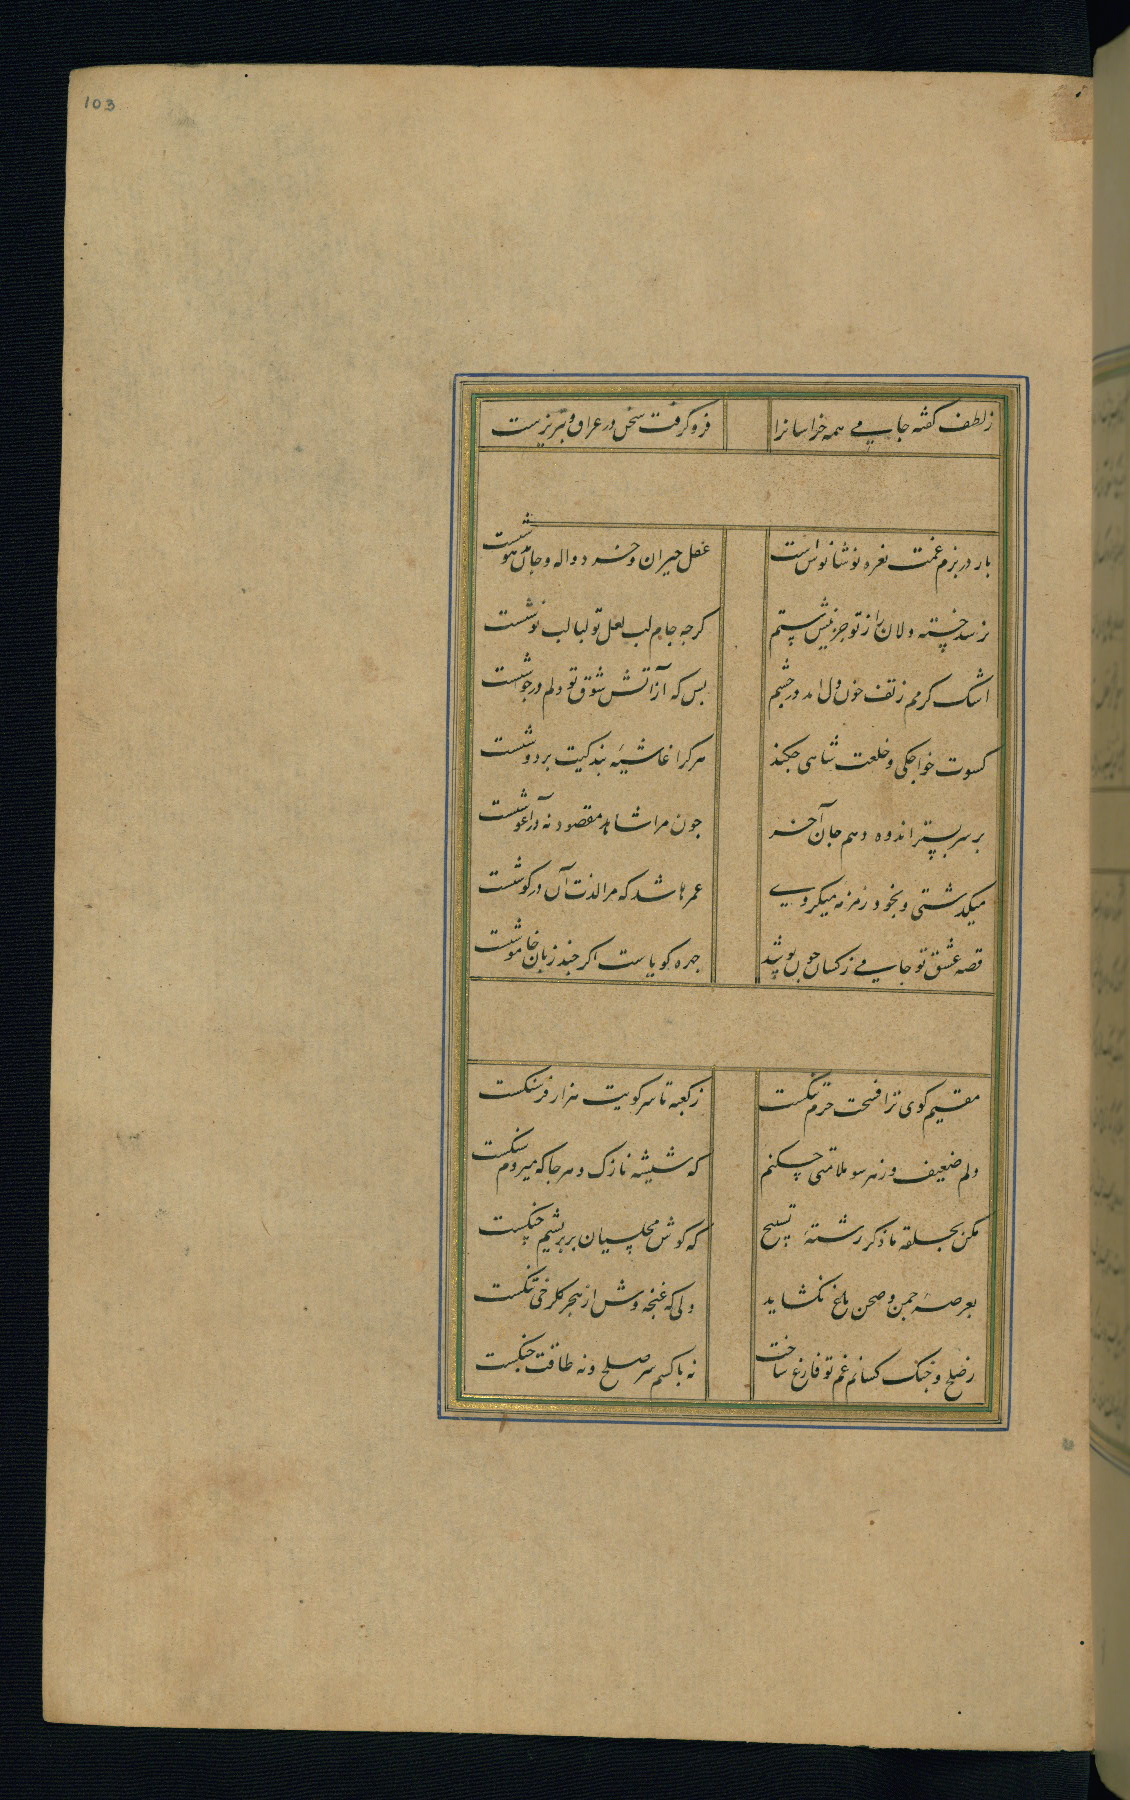 103
ز لطف گفته جامی همه خراسانرا فرو گرفت سخن در عراق و تبریزست
باز در بزم غمت نعره نوشانوش است عقل حیران و خرد واله و جان مدهوشست
نرسد خسته دلان را ز تو جز نیش ستم گرچه جام لب لعل تو لبالب نوشست
اشک گرمم ز تف خون دل آمد در چشم بس که از آتش شوق تو دلم در جوشست
کسوت خواجگی و خلعت شاهی چکند هرکرا غاشیهٔ بندگیت بر دوشست
بر سر بستر اندوه دهم جان آخر چون مرا شاهد مقصود نه در آغوشست
میگذشتی و بخود زمزمه میکردی عمرها شد که مرا لذت آن در گوشست
قصه عشق تو جامی ز کسان چون پوشد چهره گویاست اگر چند زبان خاموشست
مقیم کوی ترا فسحت حرم تنگست ز کعبه تا سر کویت هزار فرسنگست
دلم ضعیف و ز هر سو ملامتی چکنم که شیشه نازک و هر جا که میروم سنگست
مکن بحلقه ما ذکر رشتهٔ تسبیح که گوش مجلسیان بر بریشم چنگست
بعرصهٔ چمن و صحن باغ نگشاید دلی که غنچه وش از هجر گلرخی تنگست
ز صلح و جنگ کسانم غم تو فارغ ساخت نه با کسم سر صلح و نه طاقت جنگست